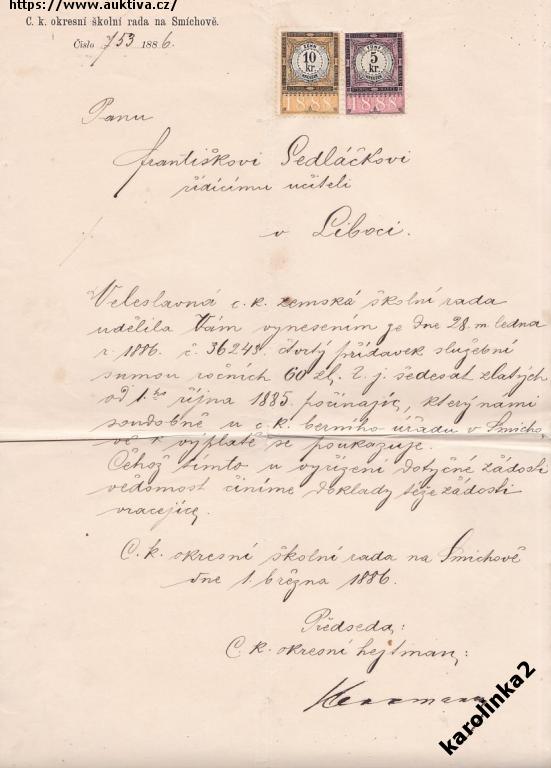 https://www.auktiva.cz/
C. k. okresní školní rada na Smíchově.
Číslo 753 1886.
10
kr.
1888
5
kr.
1888
Panu
Františkovi Sedláčkovi
řídícímu učiteli
v Liboci.
Veleslavná c. k. zemská školní rada
udělila Vám vynesením ze dne 28. m. ledna
r. 1886. č. 36243. čtvrtý přídavek služební
sumou ročních 60 zl. t. j. šedesát zlatých
od 1.ho října 1885. počínajíc, který námi
soudobně u c. k. berního úřadu v Smícho-
vě k výplatě se poukazuje.
Čehož tímto u vyřízení dotyčné žádosti
vědomost činíme doklady téže žádosti
vracejíce.
C. k. okresní školní rada na Smíchově
dne 1. března 1886.
Předseda:
C. k. okresní hejtman:
karolinka2